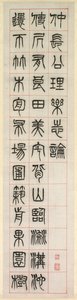 仲長公理樂志論
使居有良田美宅背山臨流溝池
環帀竹木周布場圃築前果園樹